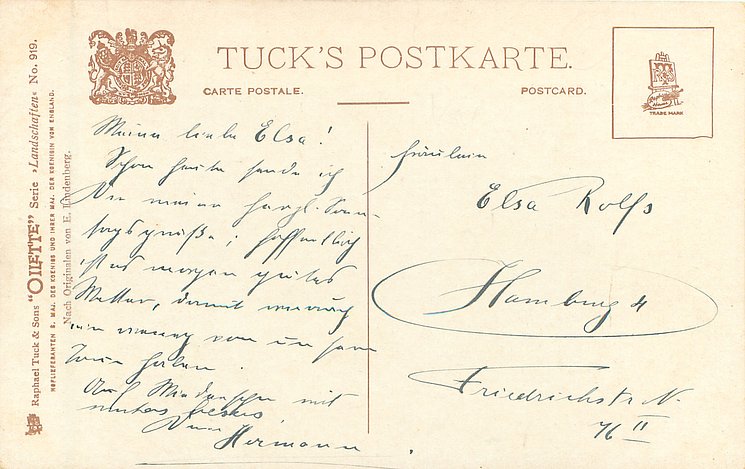 TUCK'S POSTKARTE.
CARTE POSTALE.
POSTCARD.
TRADE MARK
Raphael Tuck & Sons "OILETTE" Serie »Landschaften« No. 919.
HOFLIEFERANTEN S. MAJ. DES KOENIGS UND IHRER MAJ. DER KOENIGIN VON ENGLAND.
Nach Originalen von E. Lindenberg.
Meine liebe Elsa!
Schon heute sende ich
Dir meine herzl. Sonn-
tagsgrüße; hoffentlich
ist es morgen gutes
Wetter, damit
von
haben.
Auf Wiedersehen mit
Dein
Hermann
Fräulein
Elsa Rolfs
Hamburg 4
Friedrichstr. N.
76 II